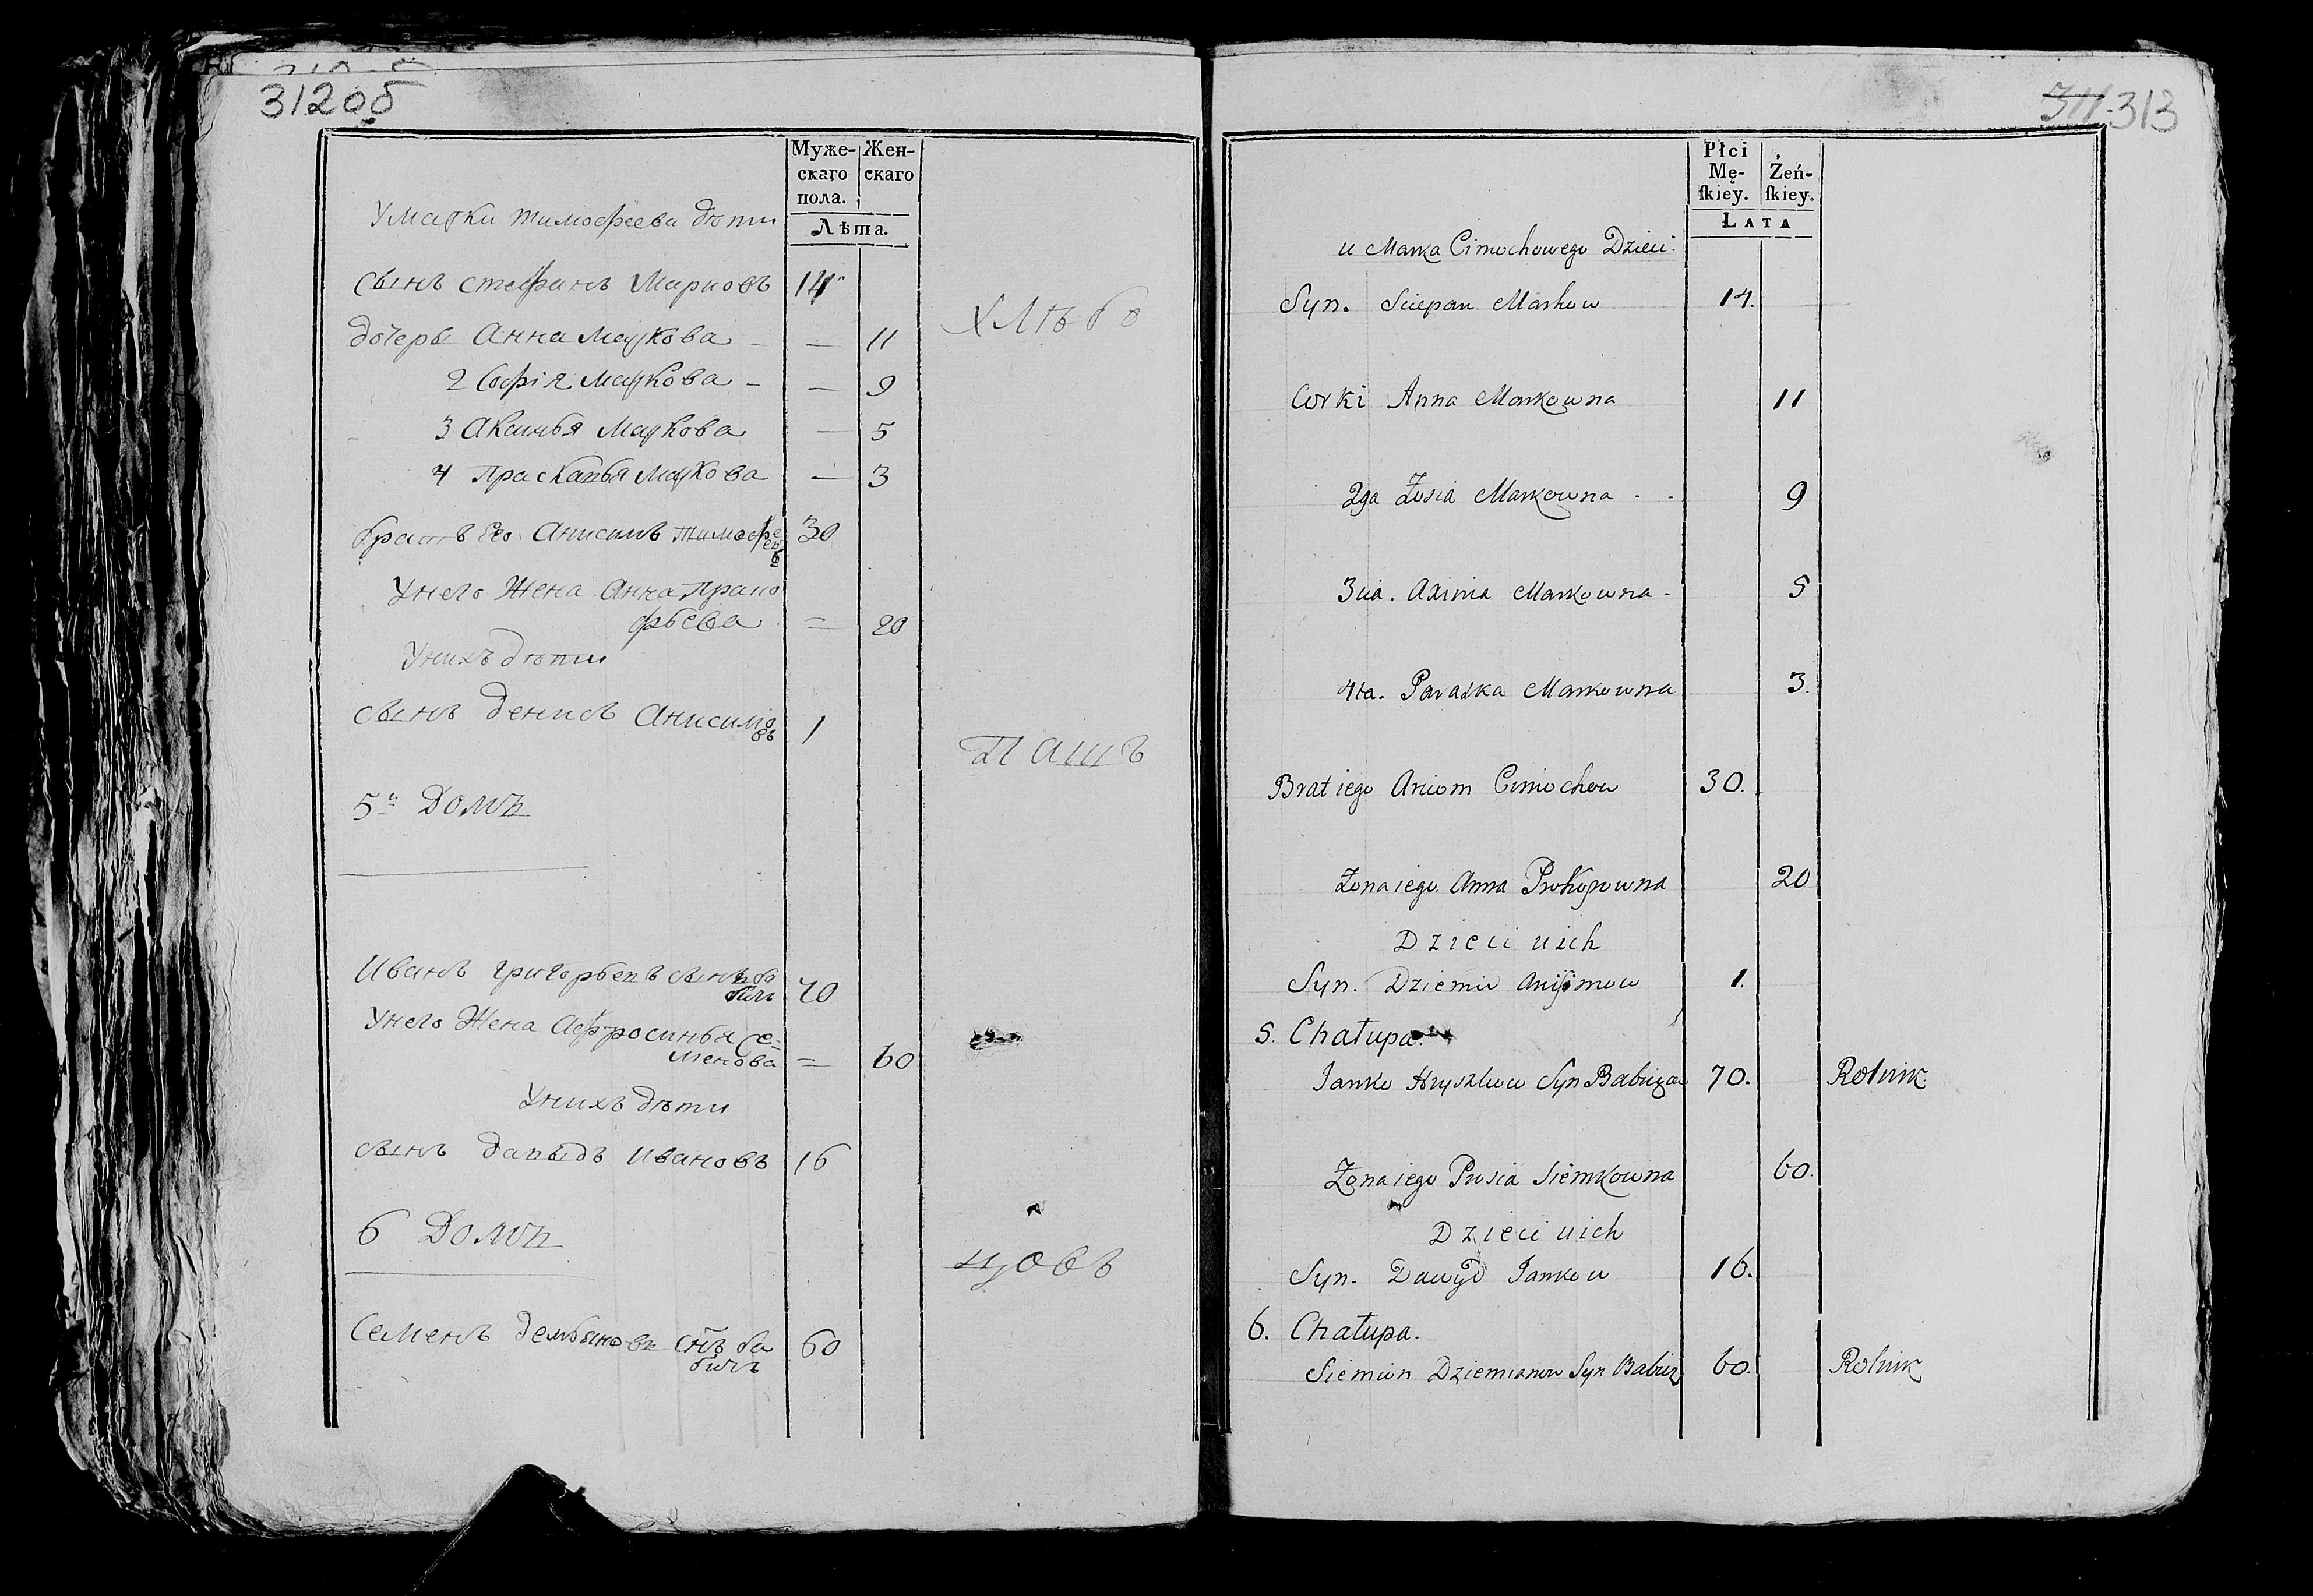 312об
Муже-
скаго
пола.
Жен-
скаго
Лѣта.
У Марки тимофеева дѣти
сынъ стефанъ Марковъ 14
дочеры Анна Маркова – — 11
2 Софія Маркова – — 9
3 Аксинья Маркова — 5
4 Прасковья Маркова — 3
братъ Его Анисимъ тимофе 30
евъ
У него Жена Анна Проко
фьева = 20
У нихъ дѣти
сынъ денисъ Анисимо 1
въ
5й Домъ
Иванъ григорьевъ сынъ ба 70
бичъ
У него Жена Афросинья Се-
менова = 60
У нихъ дѣти
сынъ давыдъ Ивановъ 16
6 Домъ
Семенъ демьяновъ снъ ба 60
бичъ
хлѣбо
паш
цовъ
311. 313
Płci
Mę-
ſkiey.
Żeń-
ſkiey.
LATA
u Marka Cimochowego Dzieci.
Syn. Sciepan Markow 14.
Corki Anna Markowna 11
2ga Zosia Markowna - - 9
3cia. Axinia Markowna - 5
4ta. Paraska Markowna 3.
Brat iego Anisom Cimochow 30.
Zona iego Anna Prokopowna 20
Dzieci u ich
Syn. Dziemid Anisimow 1.
5. Chałupa.
Janko Hryszkow Syn Babicz 70. Rolnik
Zona iego Prosia Siemkowna 60.
Dzieci u ich
Syn. Dawyd Jankow 16.
6. Chałupa.
Siemion Dziemianow Syn Babicz 60. Rolnik